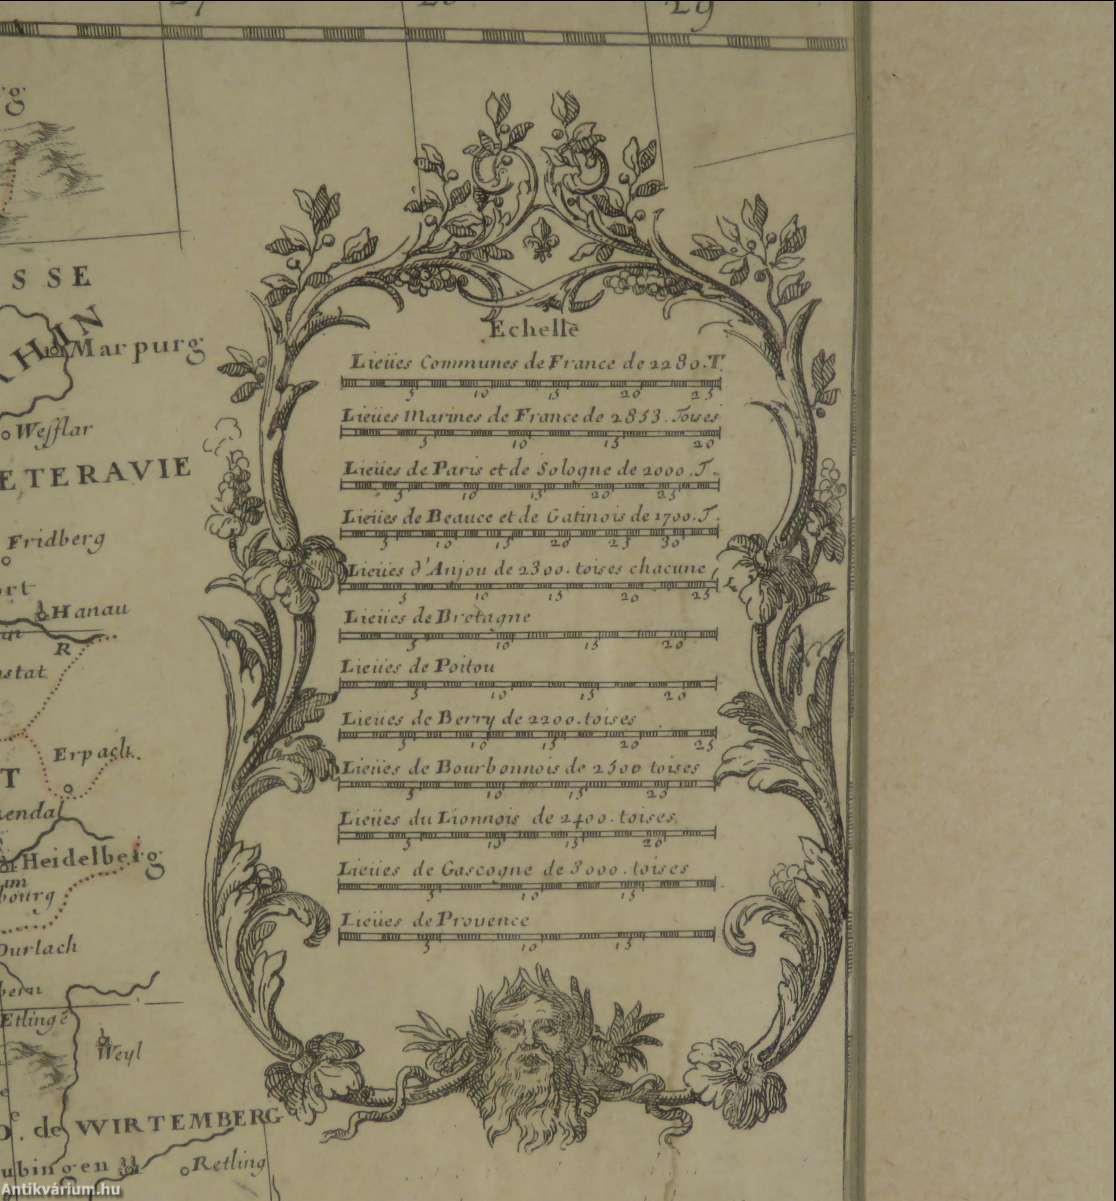 27
29
SSE
Marpurg
Wefflar
ETERAVIE
Fridberg
Hanau
R
Erpach
T
Heidelberg
bourg
Durlach
Etlingē
Weyl
de WIRTEMBERG
ubingen
Retling
Echelle
Lieües Communes de France de 2280. T.
5 10 15 20 25
Lieües Marines de France de 2853. Toises
5 10 15 20
Lieües de Paris et de Sologne de 2000. T.
5 10 15 20 25
Lieües de Beauce et de Gatinois de 1700. T.
5 10 15 20 25 30
Lieües d'Anjou de 2300. toises chacune
5 10 15 20 25
Lieües de Bretagne
5 10 15 20
Lieües de Poitou
5 10 15 20
Lieües de Berry de 2200. toises
5 10 15 20 25
Lieües de Bourbonnois de 2500 toises
5 10 15 20
Lieües du Lionnois de 2400. toises.
5 10 15 20
Lieües de Gascogne de 3000. toises
5 10 15
Lieües de Provence
5 10 15
Antikvárium.hu